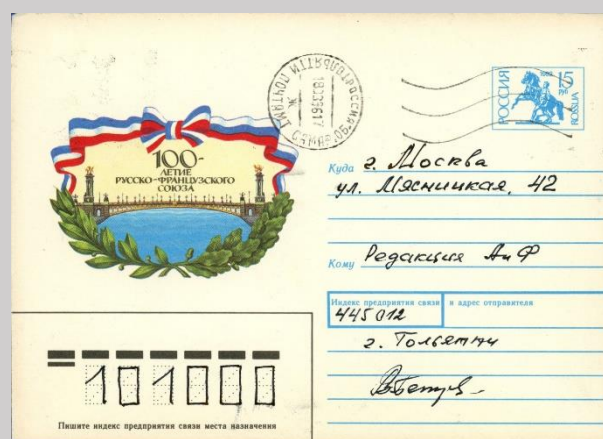 100-
ЛЕТИЕ
РУССКО-ФРАНЦУЗСКОГО
СОЮЗА
РОССИЯ
1992
15
руб
ROSSIJA
Куда г. Москва
ул. Мясницкая, 42
Кому Редакция АиФ
Индекс предприятия связи и адрес отправителя
445012
г. Тольятти
101000
Пишите индекс предприятия связи места назначения